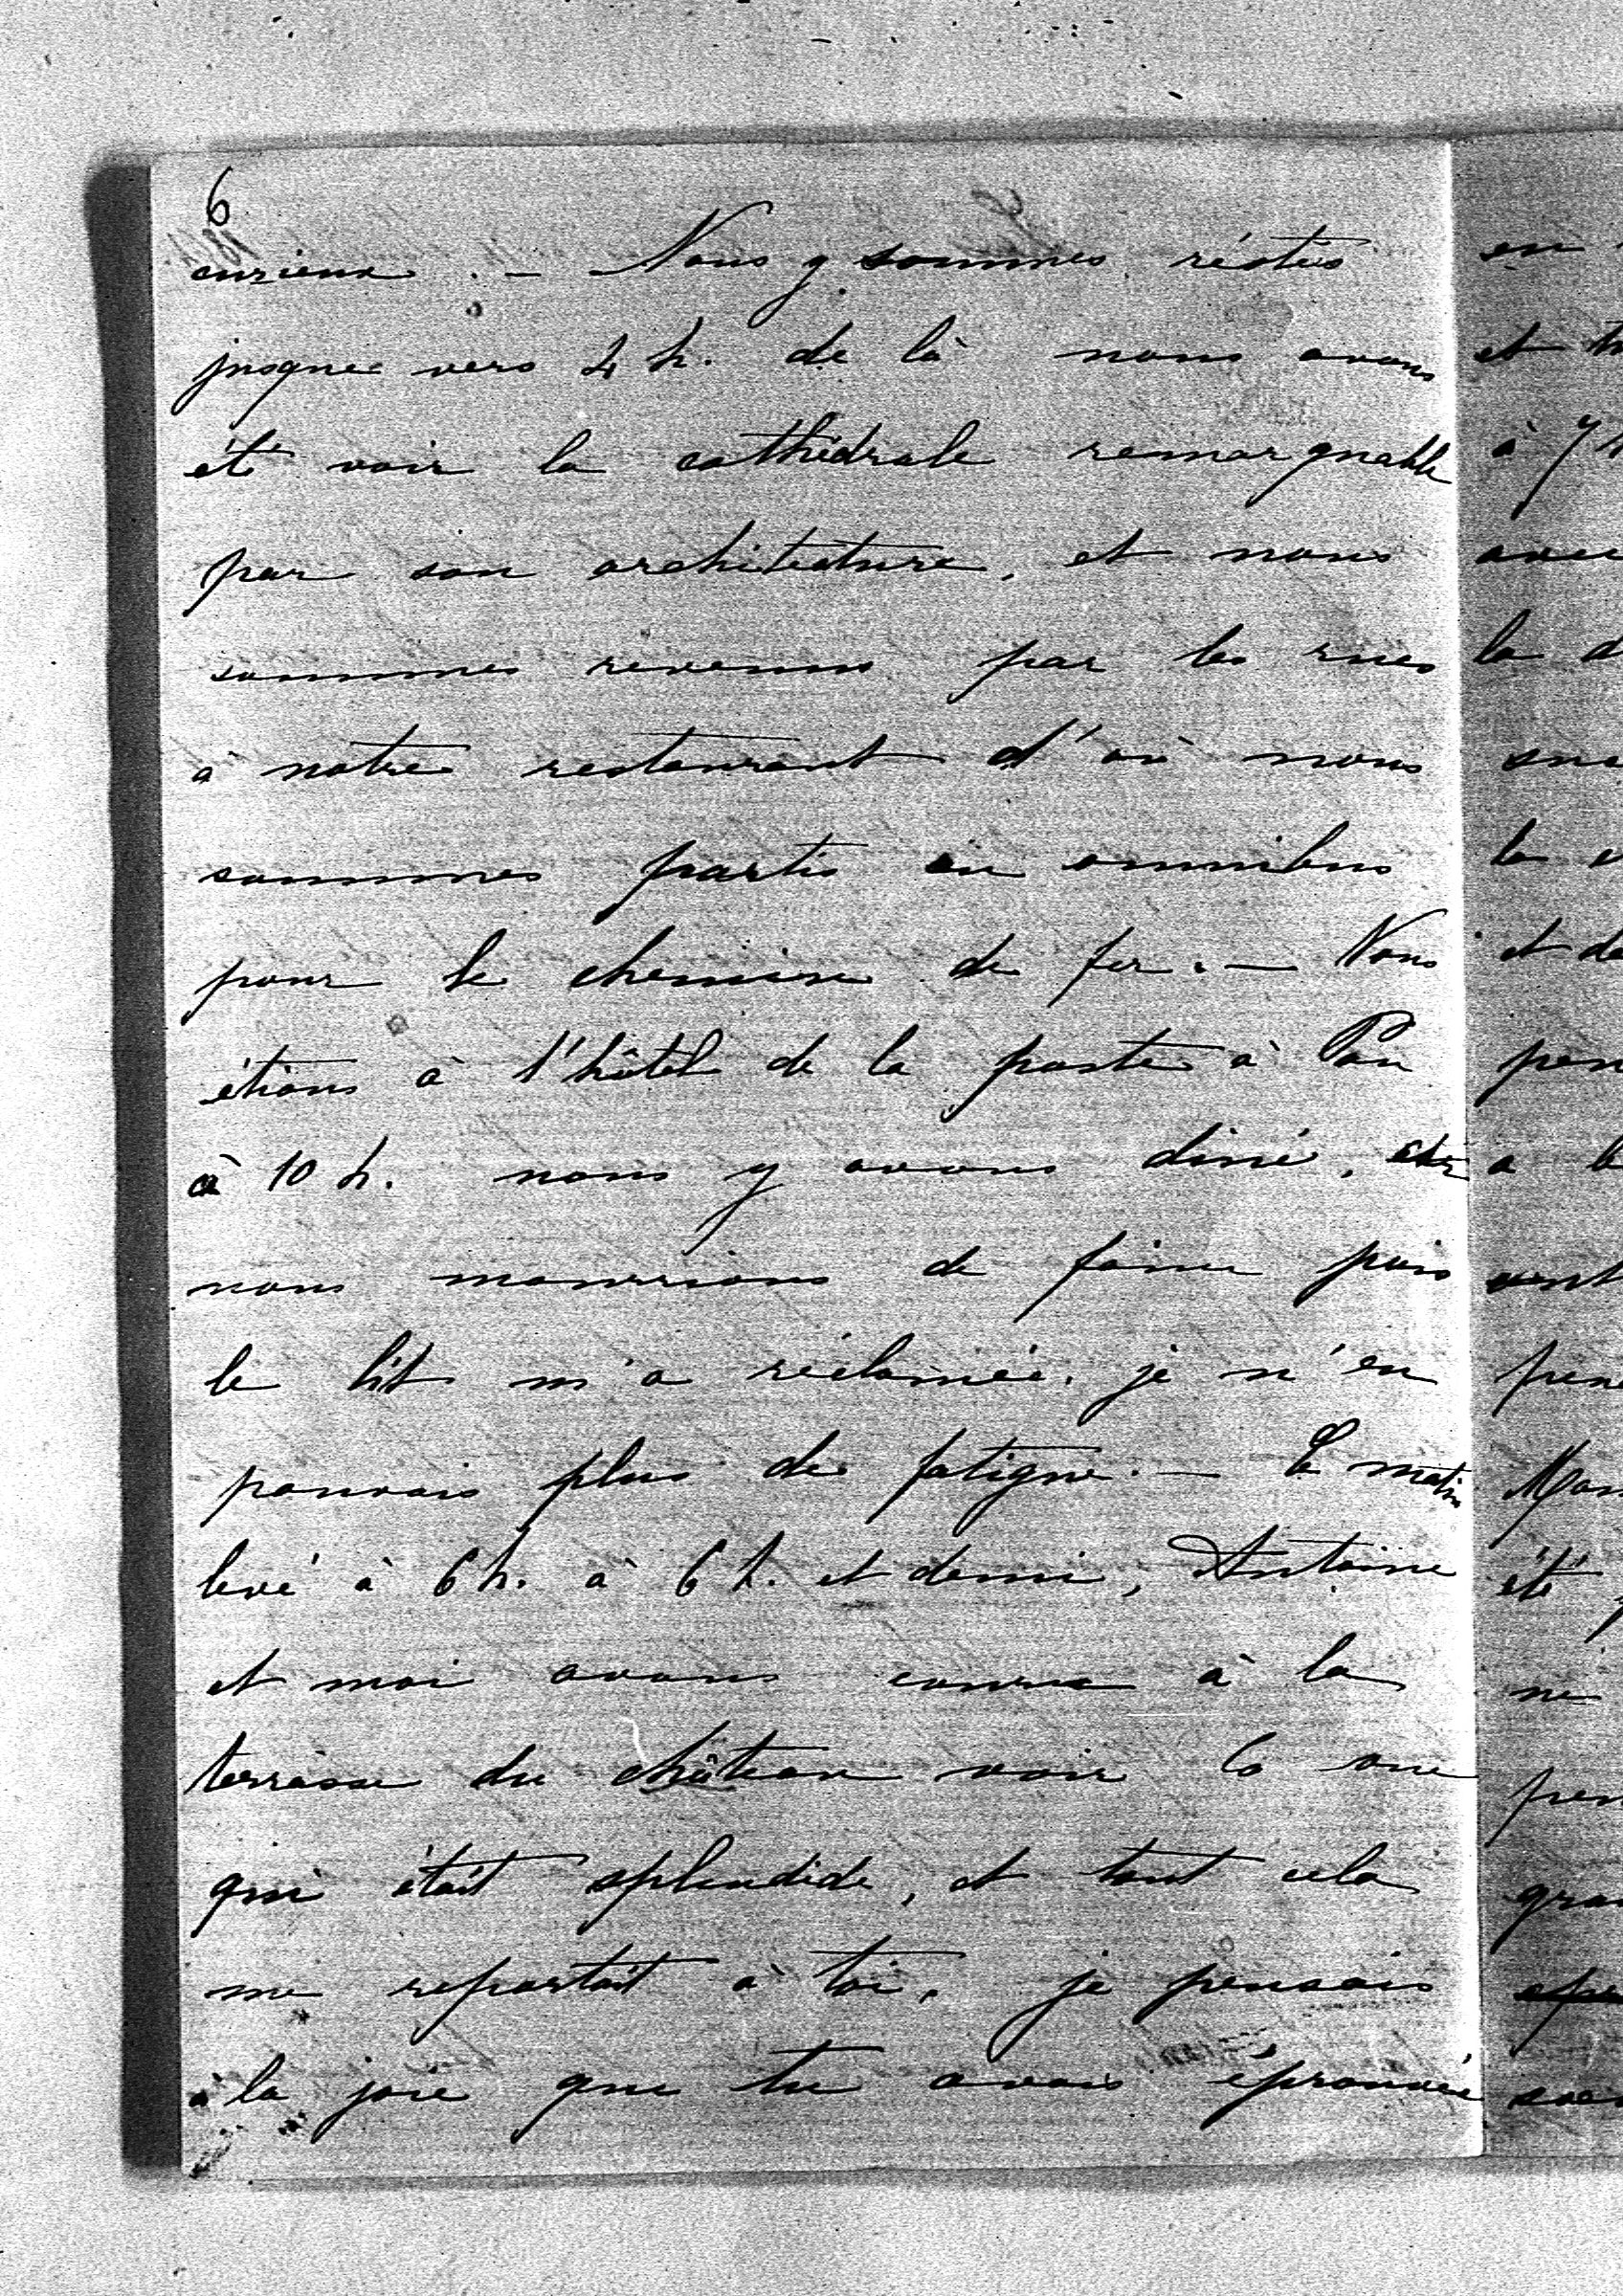 6
curieux. — Nous y sommes réstés
jusque vers 4 h. de là nous avons
été voir la cathédrale remarquable
par son architecture, et nous
sommes revenus par les rues
a notre restaurant d'où nous
sommes partis en omnibus
pour le chemin de fer. — Nous
étions à l'hôtel de la poste à Pau
à 10 h. nous y avons diné, car
nous mourrions de faim puis
le lit m'a réclamée. je n'en
pouvais plus de fatigue. — Le matin
levé à 6 h. à 6 h. et demi, Antoine
et moi avons couru à la
terrasse du château voir la vue
qui était splendide, et tout cela
me reportait à toi. je pensais
à la joie que tu avais éprouvée